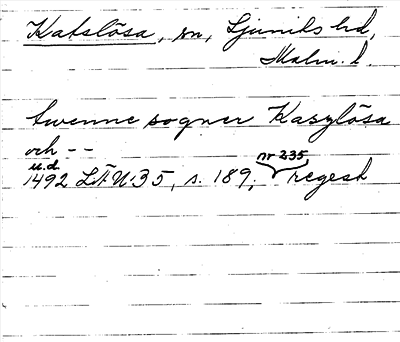 Katslösa, sn, Ljunits hd,
Malm. l.
twenne sogner Kaszlösa
och - -
u.d. nr 235,
1492 LÄU:35, s. 189, regest